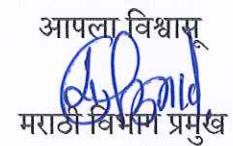 आपला विश्वासू
मराठी विभाग प्रमुख